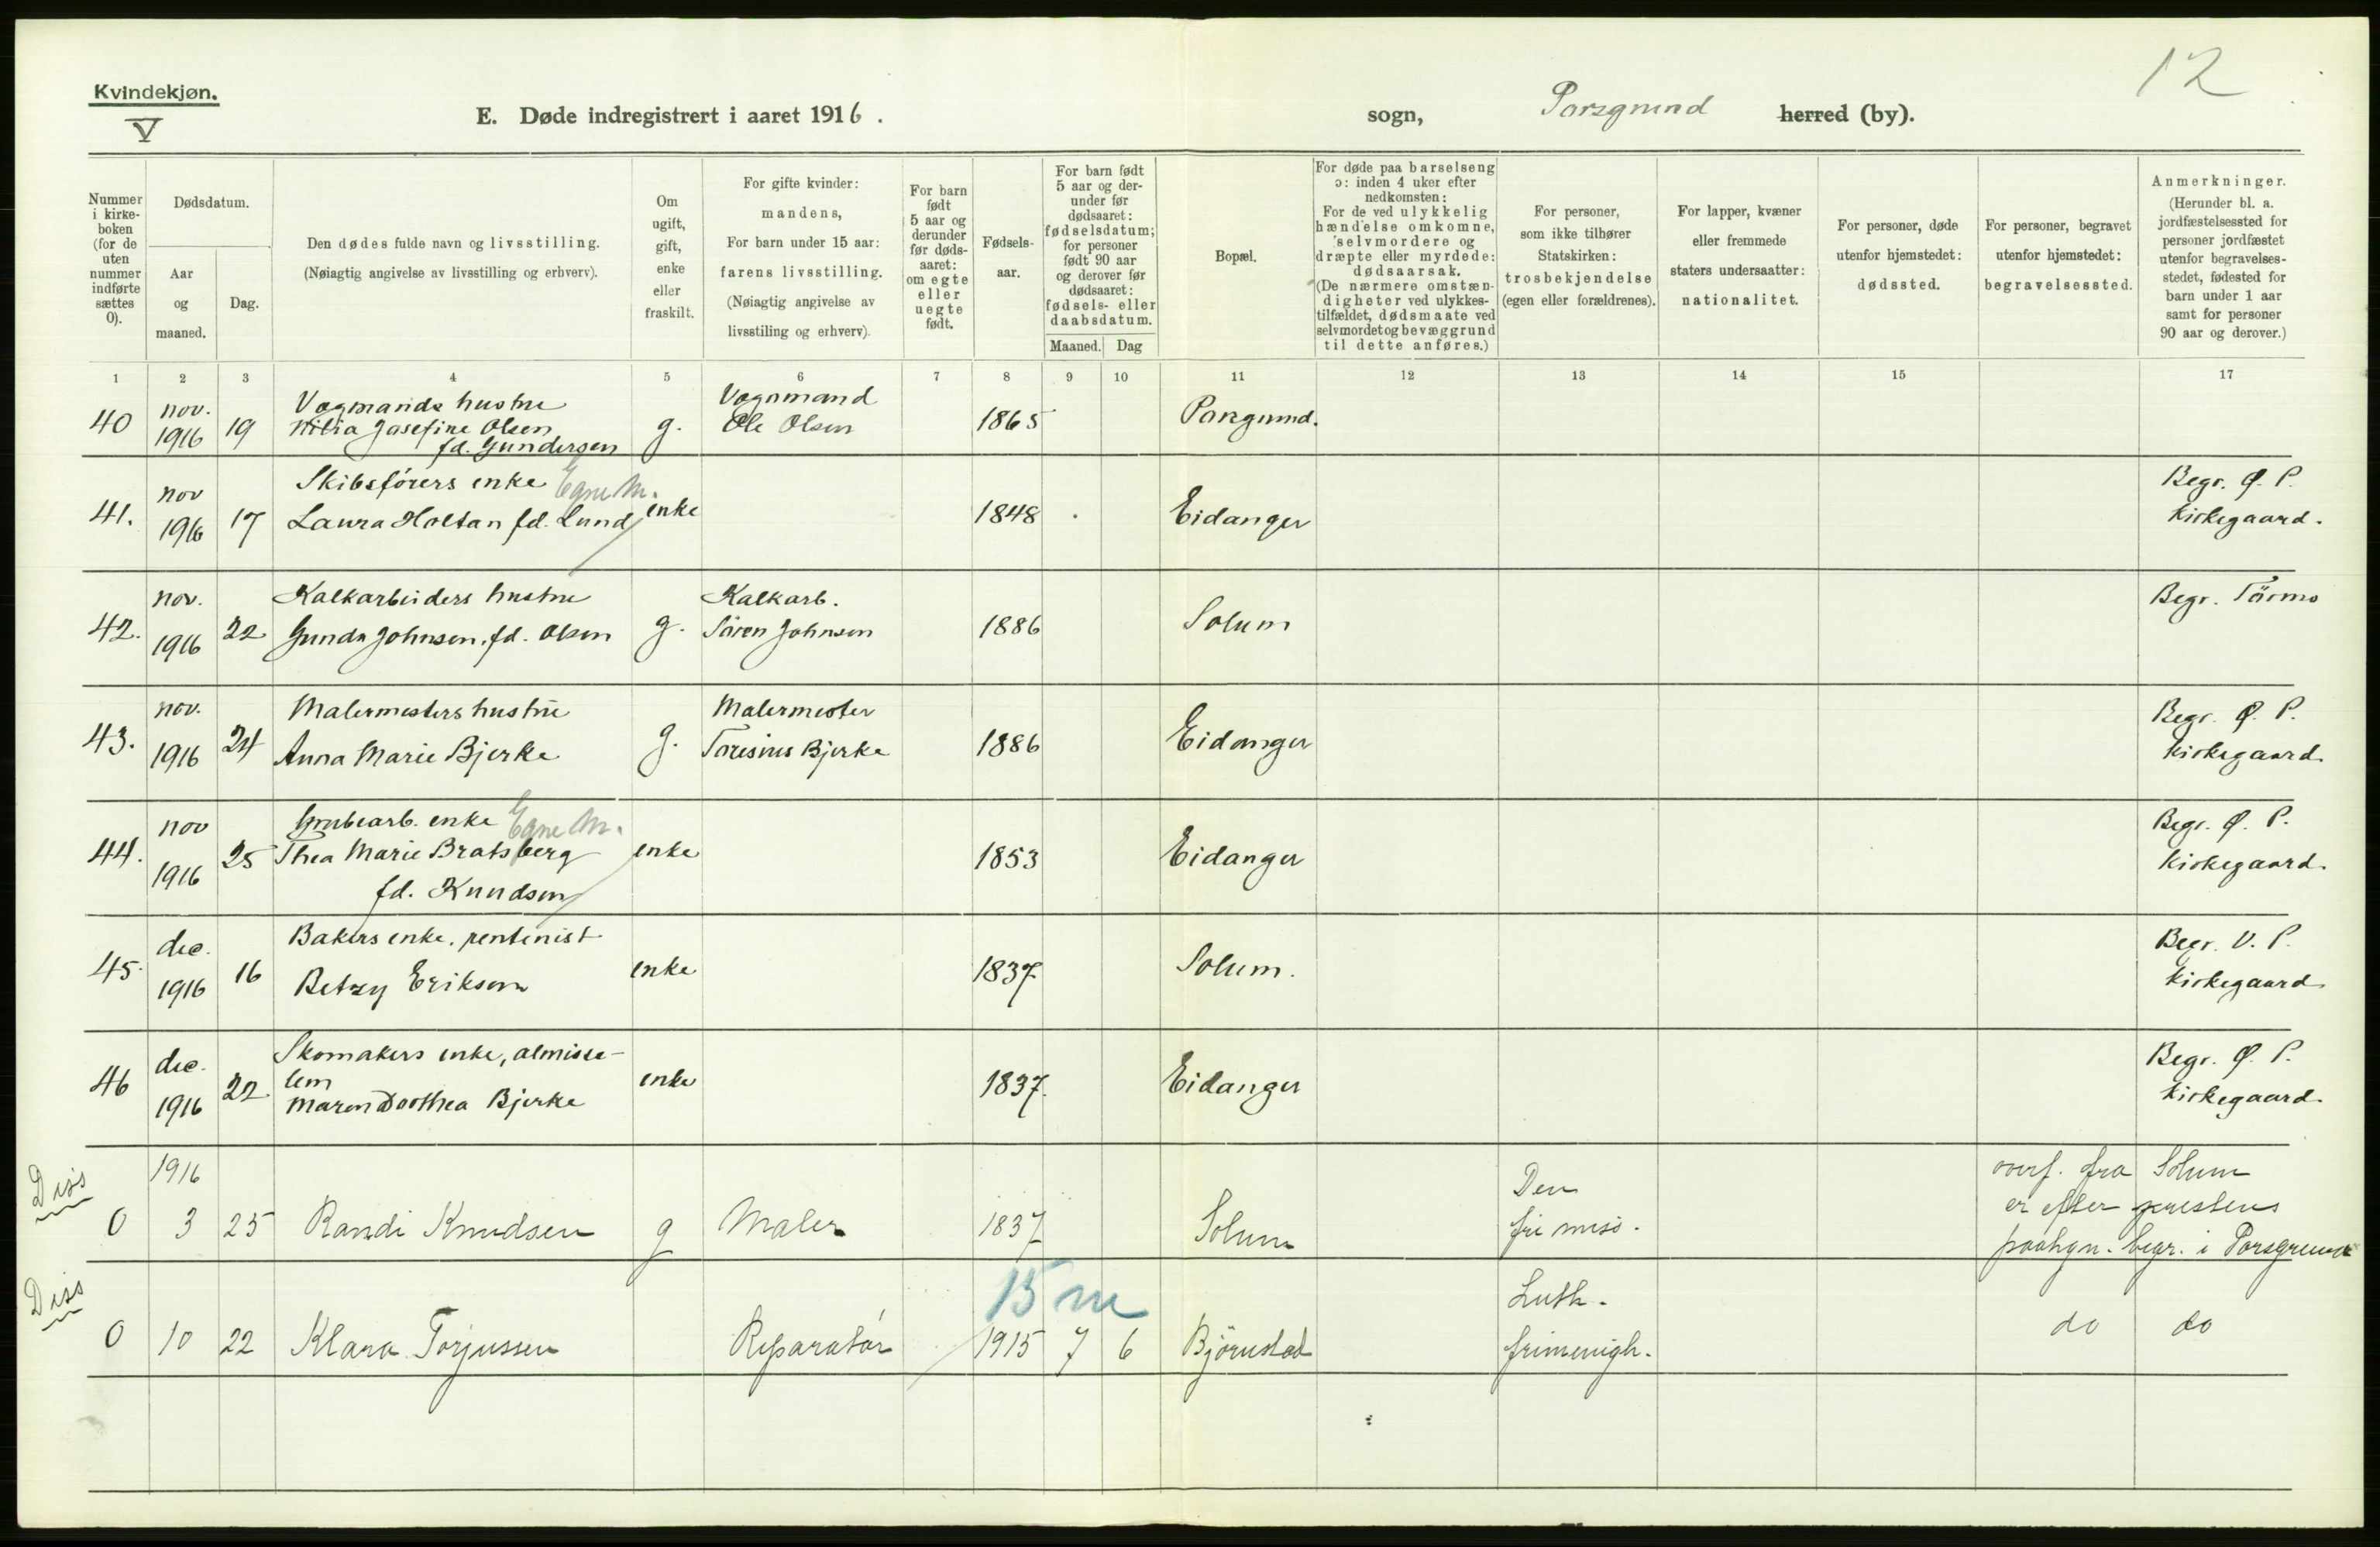 Kvindekjøn.
V
12
E. Døde indregistrert i aaret 1916.
sogn, Porsgrund herred (by).
Nummer i kirkeboken (for de uten nummer indførte sættes 0).
Dødsdatum.
Aar og maaned.
Dag.
Den dødes fulde navn og livsstilling.
(Nøiagtig angivelse av livsstilling og erhverv).
Om ugift, gift, enke eller fraskilt.
For gifte kvinder: mandens,
For barn under 15 aar: farens livsstilling.
(Nøiagtig angivelse av livsstiling og erhverv).
For barn født 5 aar og derunder før dødsaaret: om egte eller uegte født.
Fødselsaar.
For barn født 5 aar og derunder før dødsaaret: fødselsdatum; for personer født 90 aar og derover før dødsaaret: fødsels- eller daabsdatum.
Maaned. Dag
Bopæl.
For døde paa barselseng ɔ: inden 4 uker efter nedkomsten:
For de ved ulykkelig hændelse omkomne, selvmordere og dræpte eller myrdede: dødsaarsak.
(De nærmere omstændigheter ved ulykkestilfældet, dødsmaate ved selvmordet og bevæggrund til dette anføres.)
For personer, som ikke tilhører Statskirken: trosbekjendelse (egen eller forældrenes).
For lapper, kvæner eller fremmede staters undersaatter: nationalitet.
For personer, døde utenfor hjemstedet: dødssted.
For personer, begravet utenfor hjemstedet: begravelsessted.
Anmerkninger.
(Herunder bl. a. jordfæstelsessted for personer jordfæstet utenfor begravelsesstedet, fødested for barn under 1 aar samt for personer 90 aar og derover.)
1 2 3 4 5 6 7 8 9 10 11 12 13 14 15 17
40 nov. 1916 19 Vogmands hustru
Josefine Olsen
fd. Gundersen
g. Vognmand
Ole Olsen
1865 Porsgrund.
41. nov 1916 17 Skibsförers enke Egne M.
Laura Holtan fd. Lund
enke 1848 Eidanger
Begr. Ø. P.
Kirkegaard.
42. nov. 1916 22 Kalkarbeiders hustru
Gunda Johnsen. fd. Olsen
g. Kalkarb.
Sören Johnsen
1886 Solum
Begr.
43. nov. 1916 24 Malermesters hustru
Anna Marie Bjerke
g. Malermester
Toresius Bjerke
1886 Eidanger
Begr. Ø. P.
Kirkegaard.
44. nov 1916 25 Grubearb. enke Egne M.
Thea Marie Bratsberg
fd. Knudsen
enke 1853 Eidanger
Begr. Ø. P.
Kirkegaard.
45. dec. 1916 16 Bakers enke, rentenist
Betzy Eriksen
enke 1837 Solum.
Begr. V. P.
Kirkegaard
46 dec. 1916 22 Skomakers enke, almisse-
lem
Maren Dorthea Bjerke
enke 1837. Eidanger
Begr. Ø. P.
Kirkegaard.
Diss
0 1916 3 25 Randi Knudsen g Maler 1837 Solum
Den
fri miss.
overf. fra Solum
er efter prestens
paategn. begr. i Porsgrund
Diss
15 m
0 10 22 Klara Torjussen Reparatör 1915 7 6 Björnstad
Luth.
frimenigh.
do do